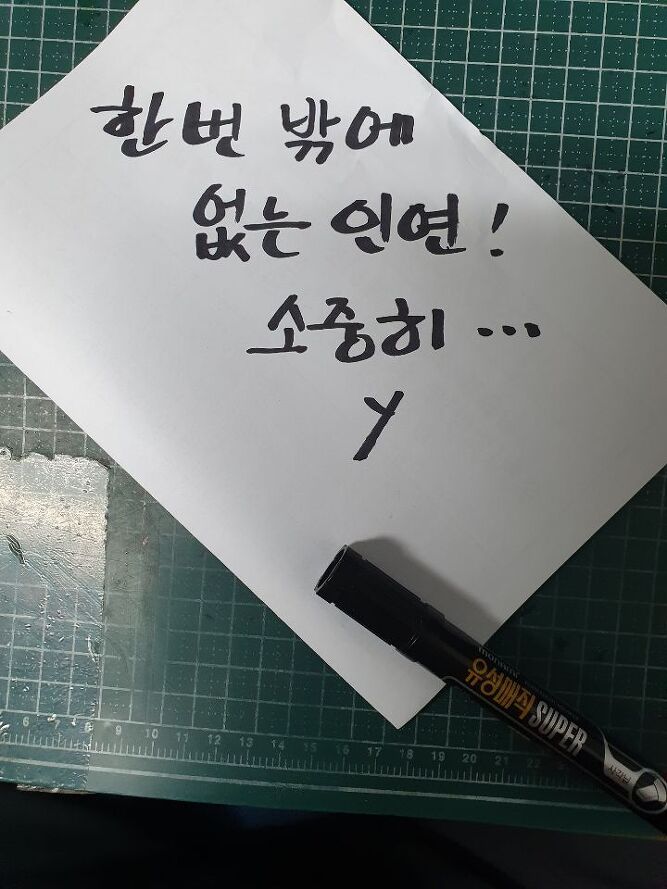 한번 밖에
없는 인연!
소중히...
y
유성매직 SUPER
6 7 8 9 10 11 12 13 14 15 16 17 18 19 20 21 22